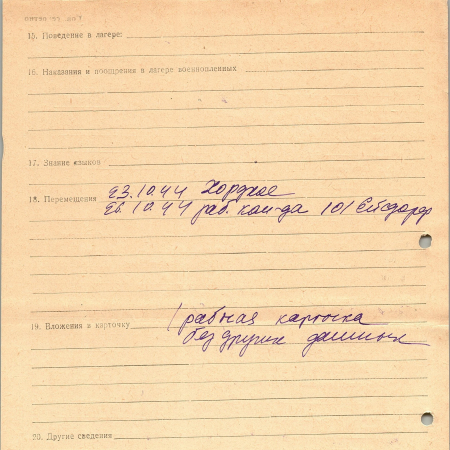 15. Поведение в лагере:
16. Наказания и поощрения в лагере военнопленных
17. Знание языков
18. Перемещения 23.10.44
26.10.44 раб. ком-да 101
19. Вложения в карточку 1 рабочая карточка
без других данных
20. Другие сведения